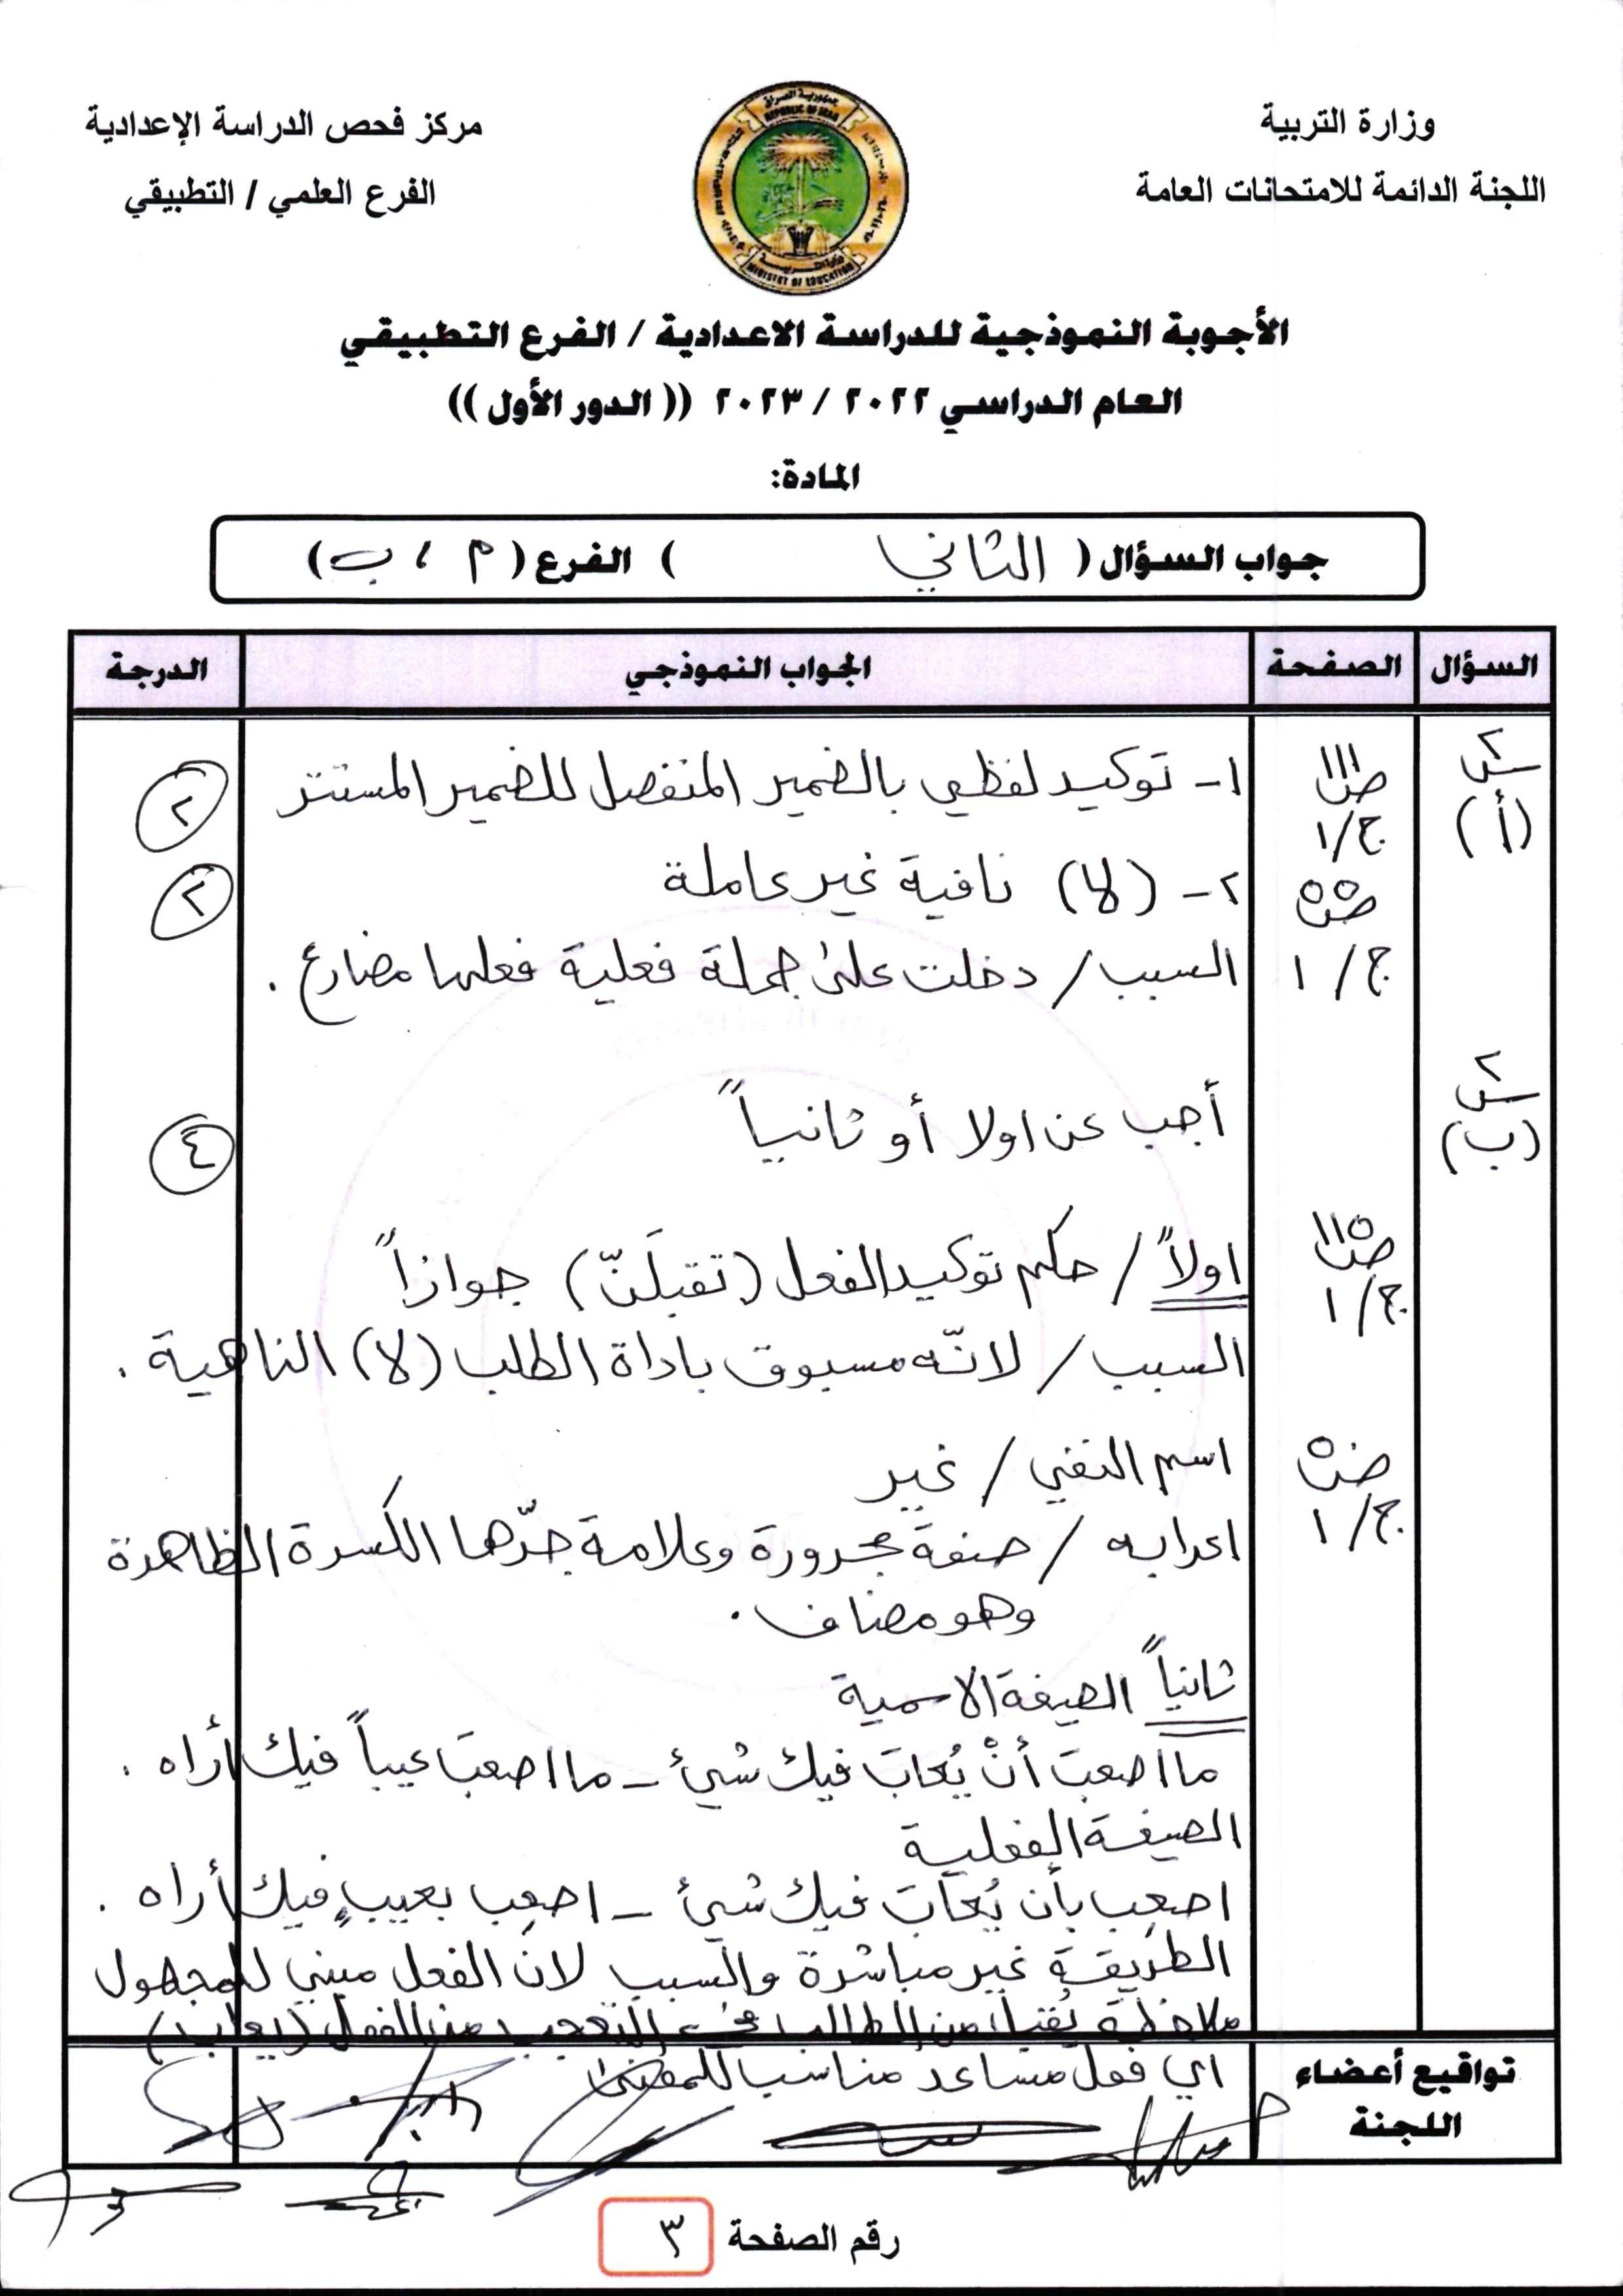 وزارة التربية
اللجنة الدائمة للامتحانات العامة
مركز فحص الدراسة الإعدادية
الفرع العلمي / التطبيقي
جمهورية العراق
REPUBLIC OF IRAQ
MINISTRY OF EDUCATION
الأجوبة النموذجية للدراسة الاعدادية / الفرع التطبيقي
العام الدراسي ٢٠٢٢ / ٢٠٢٣ (( الدور الأول ))
المادة:
جواب السؤال ( الثاني ) الفرع ( م ، ب )
السؤال الصفحة الجواب النموذجي الدرجة
س٢ (أ) ص١١١ ج/١ ١- توكيد لفظي بالضمير المنفصل للضمير المستتر ٢
ص٥٥ ج/١ ٢- (لا) نافية غير عاملة ٢
السبب / دخلت على جملة فعلية فعلها مضارع .
س٢ (ب) أجب عن اولا أو ثانياً ٤
ص١١٥ ج/١ اولاً / حكم توكيد الفعل (تقبلَنّ) جوازاً
السبب / لانّه مسبوق باداة الطلب (لا) الناهية .
اسم النفي / غير
ج/١ اعرابه / صفة مجرورة وعلامة جرّها الكسرة الظاهرة
وهو مضاف .
ثانياً الصيغة الاسمية
ما اصعبَ أنْ يُعابَ فيك شيئ - ما اصعبَ عيباً فيك أراه .
الصيغة الفعلية
اصعِب بأن يُعابَ فيك شيئ - اصعِب بعيبٍ فيك أراه .
الطريقة غير مباشرة والسبب لان الفعل مبني للمجهول
ملاحظة يُقبل من الطالب في التعجب من الفعل (يعاب)
اي فعل مساعد مناسب للمعنى
تواقيع أعضاء
اللجنة
رقم الصفحة ٣